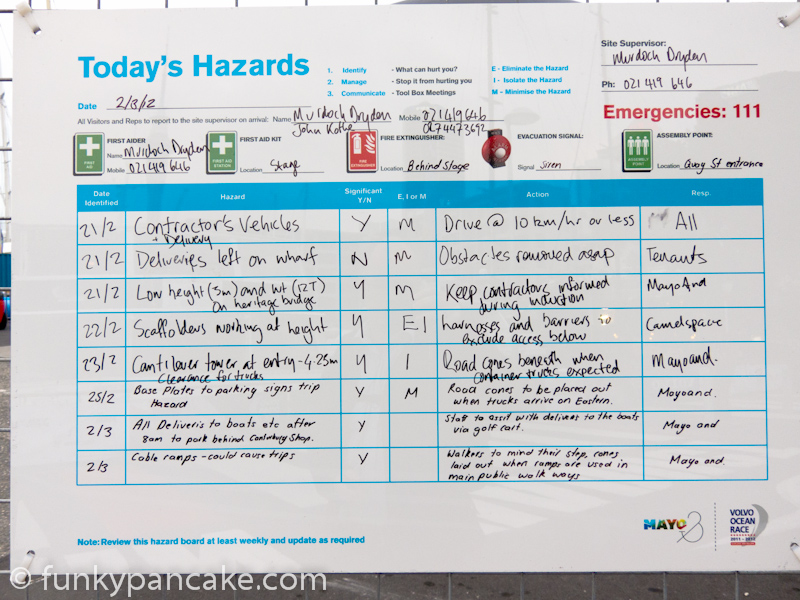 Today's Hazards
1. Identify - What can hurt you?
2. Manage - Stop it from hurting you
3. Communicate - Tool Box Meetings
E - Eliminate the Hazard
I - Isolate the Hazard
M - Minimise the Hazard
Site Supervisor:
Murdoch Dryden
Ph: 021 419 646
Emergencies: 111
Date 2/3/12
All Visitors and Reps to report to the site supervisor on arrival: Name Murdoch Dryden Mobile 021419646
John Kothe 0274473692
FIRST AID
FIRST AIDER
Name Murdoch Dryden
Mobile 021419646
FIRST AID STATION
FIRST AID KIT
Location Stage
FIRE EXTINGUISHER
FIRE EXTINGUISHER:
Location Behind Stage
EVACUATION SIGNAL:
Signal Siren
ASSEMBLY POINT
ASSEMBLY POINT:
Location Quay St entrance
Date Identified Hazard Significant Y/N E, I or M Action Resp.
21/2 Contractor's Vehicles + Delivery Y M Drive @ 10 km/hr or less All
21/2 Deliveries left on wharf N M Obstacles removed asap Tenants
21/2 Low height (5m) and wt (12T) on heritage bridge Y M Keep contractors informed during induction Mayo And
22/2 Scaffolders working at height Y E I harnesses and barriers to exclude access below Camelspace
23/2 Cantilover tower at entry - 4.25m Clearance for trucks Y I Road cones beneath when container trucks expected Mayoand.
25/2 Base Plates to parking signs trip Hazard Y M Road cones to be placed out when trucks arrive on Eastern. Moyoand.
2/3 All Deliveris to boats etc after 8am to park behind Canterbury Shop. Y Staff to assit with delivers to the boats via golf cart. Mayo and
2/3 Cable ramps - could cause trips Y Walkers to mind their step, cones laid out when ramps are used in main public walk ways Mayo and.
Note: Review this hazard board at least weekly and update as required
MAYO &
VOLVO OCEAN RACE
2011 - 2012
© funkypancake.com